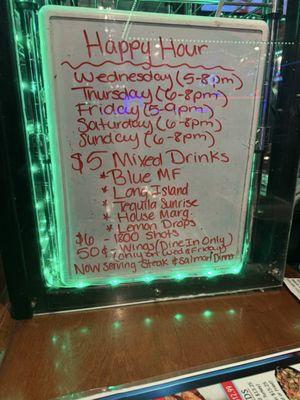 Happy Hour
Wednesday (5-8pm)
Thursday (6-8pm)
Friday (5-9pm)
Saturday (6-8pm)
Sunday (6-8pm)
$5 Mixed Drinks
* Blue MF
* Long Island
* Tequila Sunrise
* House Marg.
* Lemon Drops
$6 - 1800 Shots
50¢ - Wings (Dine In Only)
(Only on Wed & Friday)
Now Serving Steak & Salmon Dinner